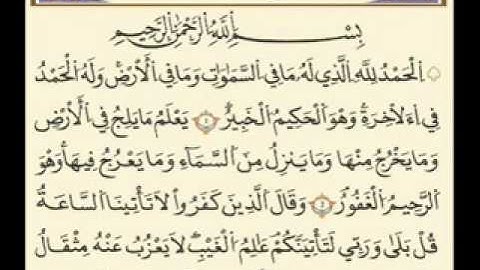 بِسْمِ اللَّهِ الرَّحْمَٰنِ الرَّحِيمِ
الْحَمْدُ لِلَّهِ الَّذِي لَهُ مَا فِي السَّمَاوَاتِ وَمَا فِي الْأَرْضِ وَلَهُ الْحَمْدُ
فِي الْآخِرَةِ وَهُوَ الْحَكِيمُ الْخَبِيرُ ١ يَعْلَمُ مَا يَلِجُ فِي الْأَرْضِ
وَمَا يَخْرُجُ مِنْهَا وَمَا يَنزِلُ مِنَ السَّمَاءِ وَمَا يَعْرُجُ فِيهَا وَهُوَ
الرَّحِيمُ الْغَفُورُ ٢ وَقَالَ الَّذِينَ كَفَرُوا لَا تَأْتِينَا السَّاعَةُ
قُلْ بَلَىٰ وَرَبِّي لَتَأْتِيَنَّكُمْ عَالِمِ الْغَيْبِ لَا يَعْزُبُ عَنْهُ مِثْقَالُ